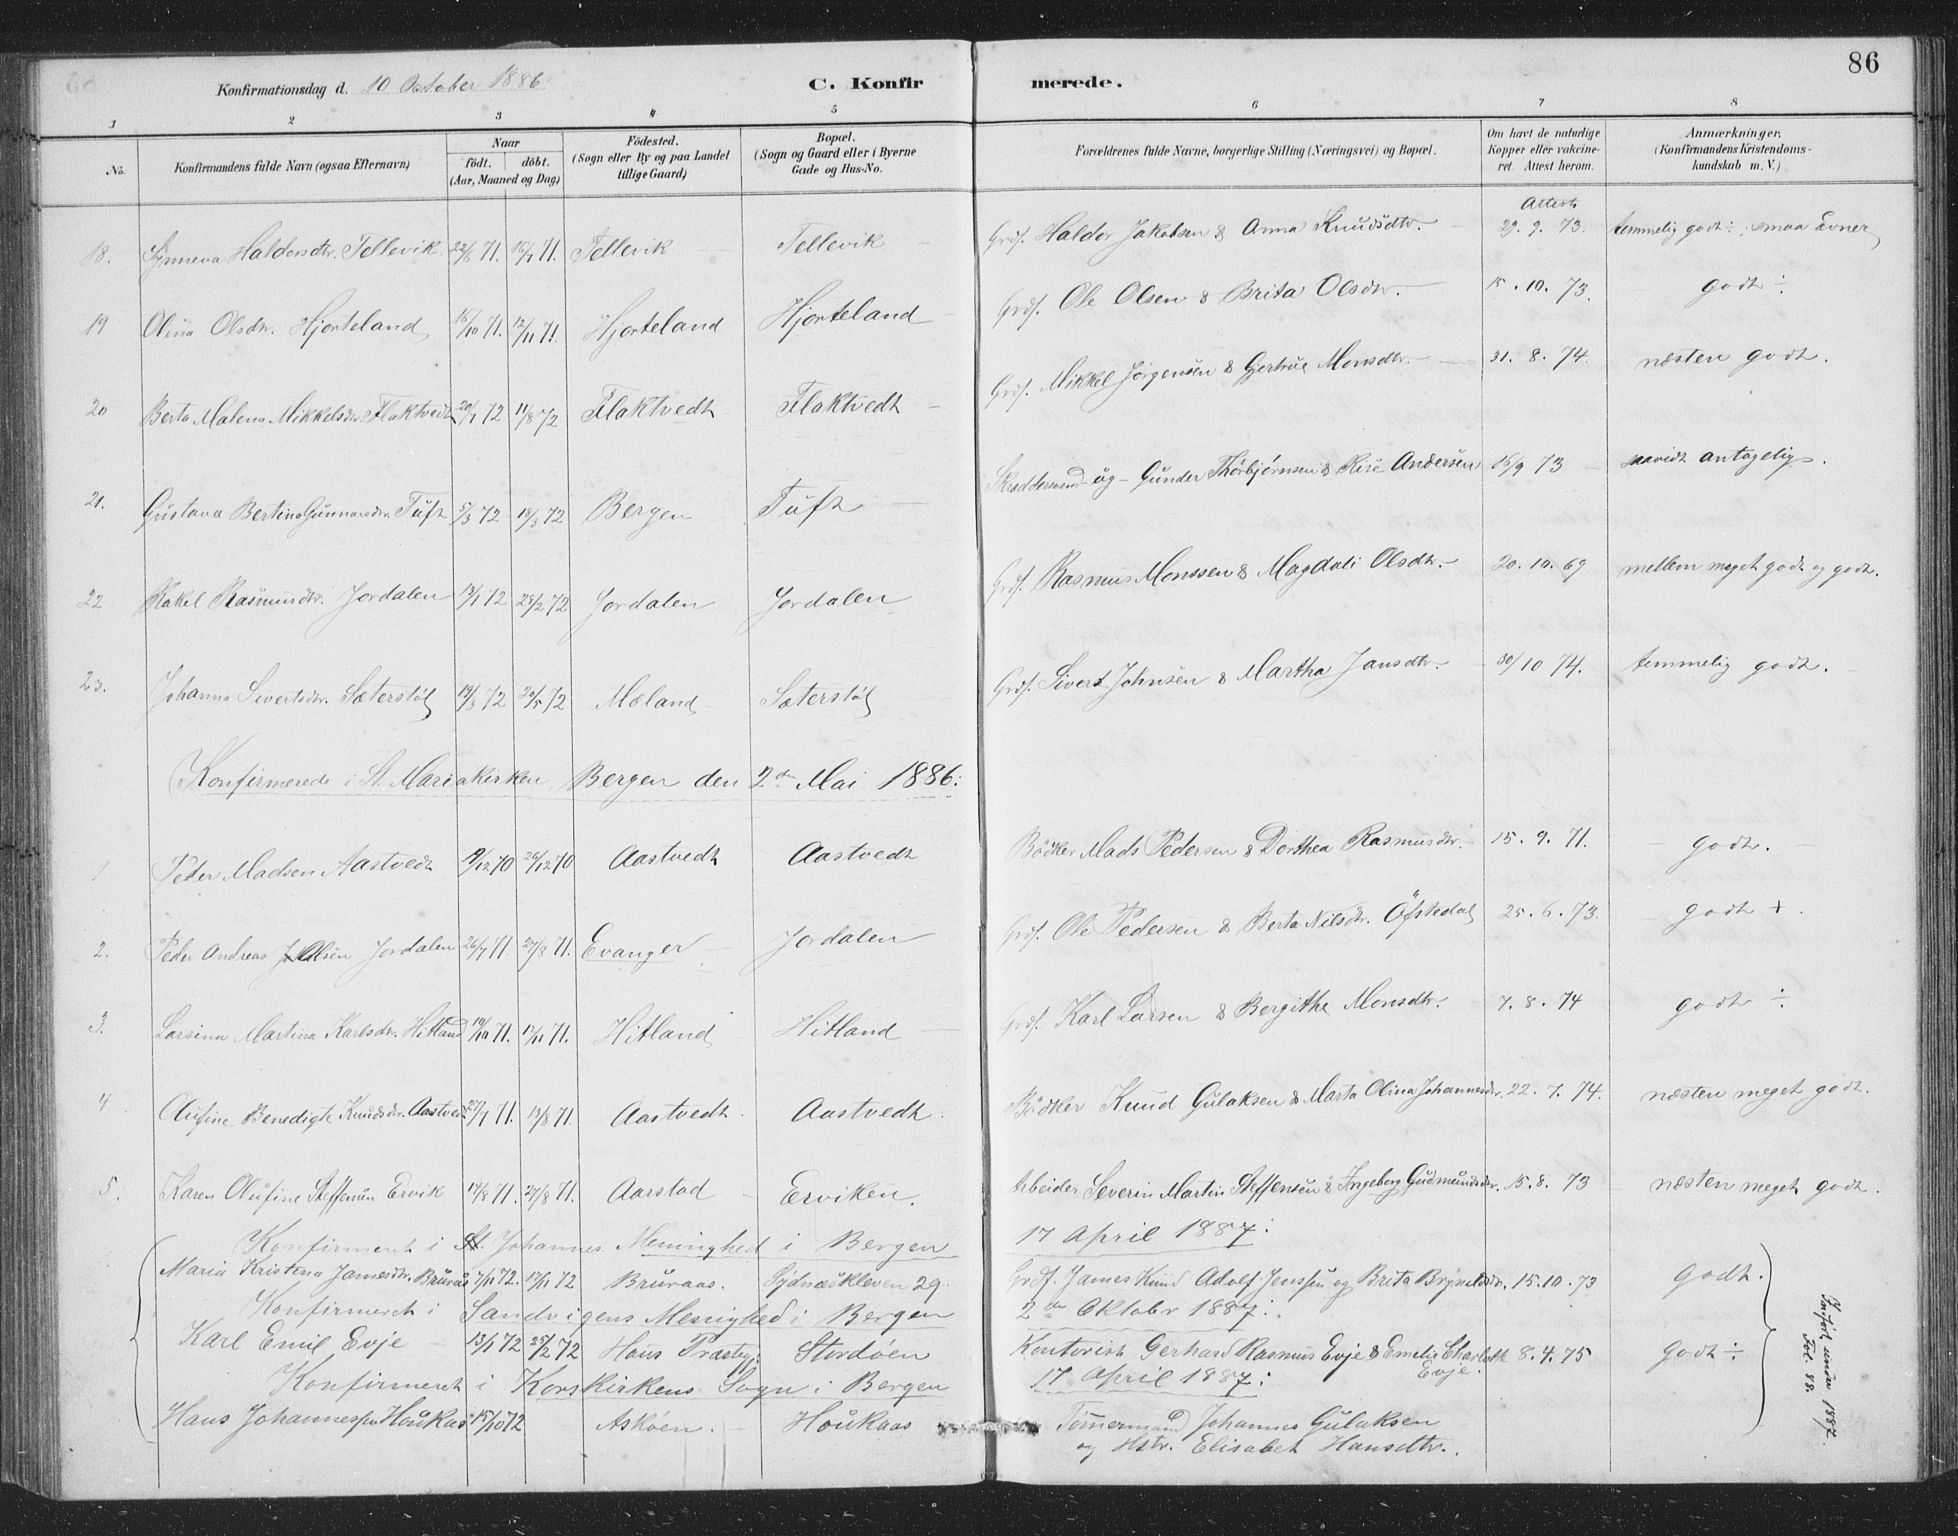 86
Konfirmationsdag d. 10 October 1886. C. Konfirmerede.
1 2 3 4 5 6 7 8
No. Konfirmandens fulde Navn (ogsaa Efternavn) Naar födt. döbt. (Aar, Maaned og Dag) Födested. (Sogn eller By og paa Landet tillige Gaard) Bopæl. (Sogn og Gaard eller i Byerne Gade og Hus-No. Forældrenes fulde Navne, borgerlige Stilling (Næringsvei) og Bopæl. Om havt de naturlige Kopper eller vakcineret. Attest herom. Anmærkninger. (Konfirmandens Kristendomskundskab m. V.)
18. Synneva Haldorsdtr. Tellevik 22/6 71. 16/7 71. Tellevik Tellevik Grdf. Haldor Jakobsen & Anna Knudsdtr. Attest 29. 9. 73. temmelig godt ÷, smaa Evner
19 Olina Olsdtr. Hjorteland 16/10 71. 12/11 71. Hjorteland Hjorteland Grdf. Ole Olsen & Brita Olsdtr. 15. 10. 73. godt ÷
20 Berta Malena Mikkelsdtr. Flaktvedt 20/7 72 11/8 72 Flaktvedt Flaktvedt Grdf. Mikkel Jörgensen & Gjertrue Monsdtr. 31. 8. 74. næsten godt.
21. Gustava Bertina Gunnarsdtr. Tuft 5/3 72 18/3 72 Bergen Tuft Skræddersvend ug Gunder Thorbjørnsen & Lise Andersen 16/9 73 saavidt antagelig.
22 Rakel Rasmusdtr. Jordalen 13/1 72 25/2 72 Jordalen Jordalen Grdf. Rasmus Monssen & Magdali Olsdtr. 20. 10. 69 mellem meget godt og godt.
23. Johanna Sivertsdtr. Sæterstøl 19/3 72 20/5 72 Mæland Sæterstøl Grdf. Sivert Johnsen & Martha Jansdtr. 30/10 74. temmelig godt.
Konfirmerede i St. Mariakirken Bergen den 2den Mai 1886:
1 Peder Madsen Aastvedt 9/12 70 26/12 70 Aastvedt Aastvedt Bödker Mads Pedersen & Dorthea Rasmusdtr. 15. 9. 71. godt.
2. Peder Andreas Olsen Jordalen 26/7 71. 27/8 71. Evanger Jordalen Grdf. Ole Pedersen & Berta Nilsdtr. Öfstedal 25. 6. 73. godt +.
3. Larsina Martina Karlsdtr. Hitland 19/10 71. 12/11 71. Hitland Hitland Grdf. Karl Larsen & Bergithe Monsdtr. 7. 8. 74 godt ÷
4 Olufine Benedigte Knudsdtr. Aastvedt 21/7 71. 13/8 71. Aastvedt. Aastvedt. Bödker Knud Gulaksen & Marta Olina Johannesdtr. 22. 7. 74. næsten meget godt.
5. Karen Olufine Steffensen Ervik 17/8 71. 27/8 71. Aarstad Erviken. Arbeider Severin Martin Steffensen & Ingeborg Gudmundsdtr. 15. 8. 73 næsten meget godt.
Konfirmeret i St. Johannes Menighed i Bergen 17 April 1887:
Maria Kristena Jamesdtr. Bruraas 7/11 72. 17/11 72 Bruraas. Sydnæskleven 29. Grdf. James Knud Adolf Jenssen og Brita Brynildsdtr. 15. 10. 73 godt.
Konfirmeret i Sandvigens Menighed i Bergen 2den Oktober 1887:
Karl Emil Evje 13/1 72 25/2 72 Hans Præstegj. Stordøen Kontorist Gerhard Rasmus Evje & Emelie Charlotte Evje. 8. 4. 75 godt ÷
Konfirmeret i Korskirkens Sogn i Bergen 17 April 1887:
Hans Johannessen Houkaas 15/10 72 Askøen. Houkaas Tømmermand Johannes Gulaksen
og Hstr. Elisabet Hansdtr.
Indført under 1887.
Fol. 88.